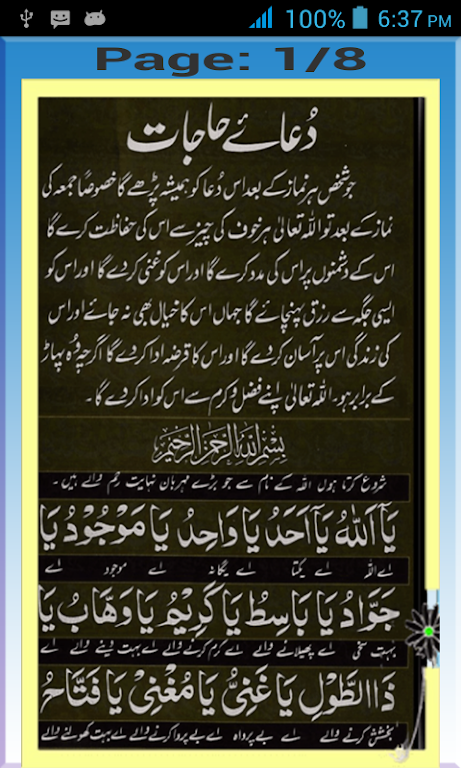 100% 6:37 PM
Page: 1/8
دُعائے حاجات
جو شخص ہر نماز کے بعد اس دُعا کو ہمیشہ پڑھے گا خصوصًا جمعہ کی
نماز کے بعد تو اللہ تعالیٰ ہر خوف کی چیز سے اس کی حفاظت کرے گا
اس کے دشمنوں پر اس کی مدد کرے گا اور اس کو غنی کر دے گا اور اس کو
ایسی جگہ سے رزق پہنچائے گا جہاں اس کا خیال بھی نہ جائے اور اس
کی زندگی اس پر آسان کر دے گا اور اس کا قرضہ ادا کر دے گا اگرچہ وُہ پہاڑ
کے برابر ہو۔ اللہ تعالیٰ اپنے فضل و کرم سے اس کو ادا کر دے گا۔
بِسْمِ اللهِ الرَّحْمٰنِ الرَّحِيْمِ
شروع کرتا ہوں اللہ کے نام سے جو بڑے مہربان نہایت رحم والے ہیں۔
يَآ اَللّٰهُ يَآ اَحَدُ يَا وَاحِدُ يَا مَوْجُوْدُ يَا
اے اللہ اے یکتا اے یگانہ اے موجود اے
جَوَّادُ يَا بَاسِطُ يَا كَرِيْمُ يَا وَهَّابُ يَا
بہت سخی اے پھیلانے والے اے کرم کرنے والے اے بہت دینے والے اے
ذَا الطَّوْلِ يَا غَنِىُّ يَا مُغْنِىْ يَا فَتَّاحُ
بخشش کرنے والے اے بے پرواہ اے بے پروا کرنے والے اے بہت کھولنے والے